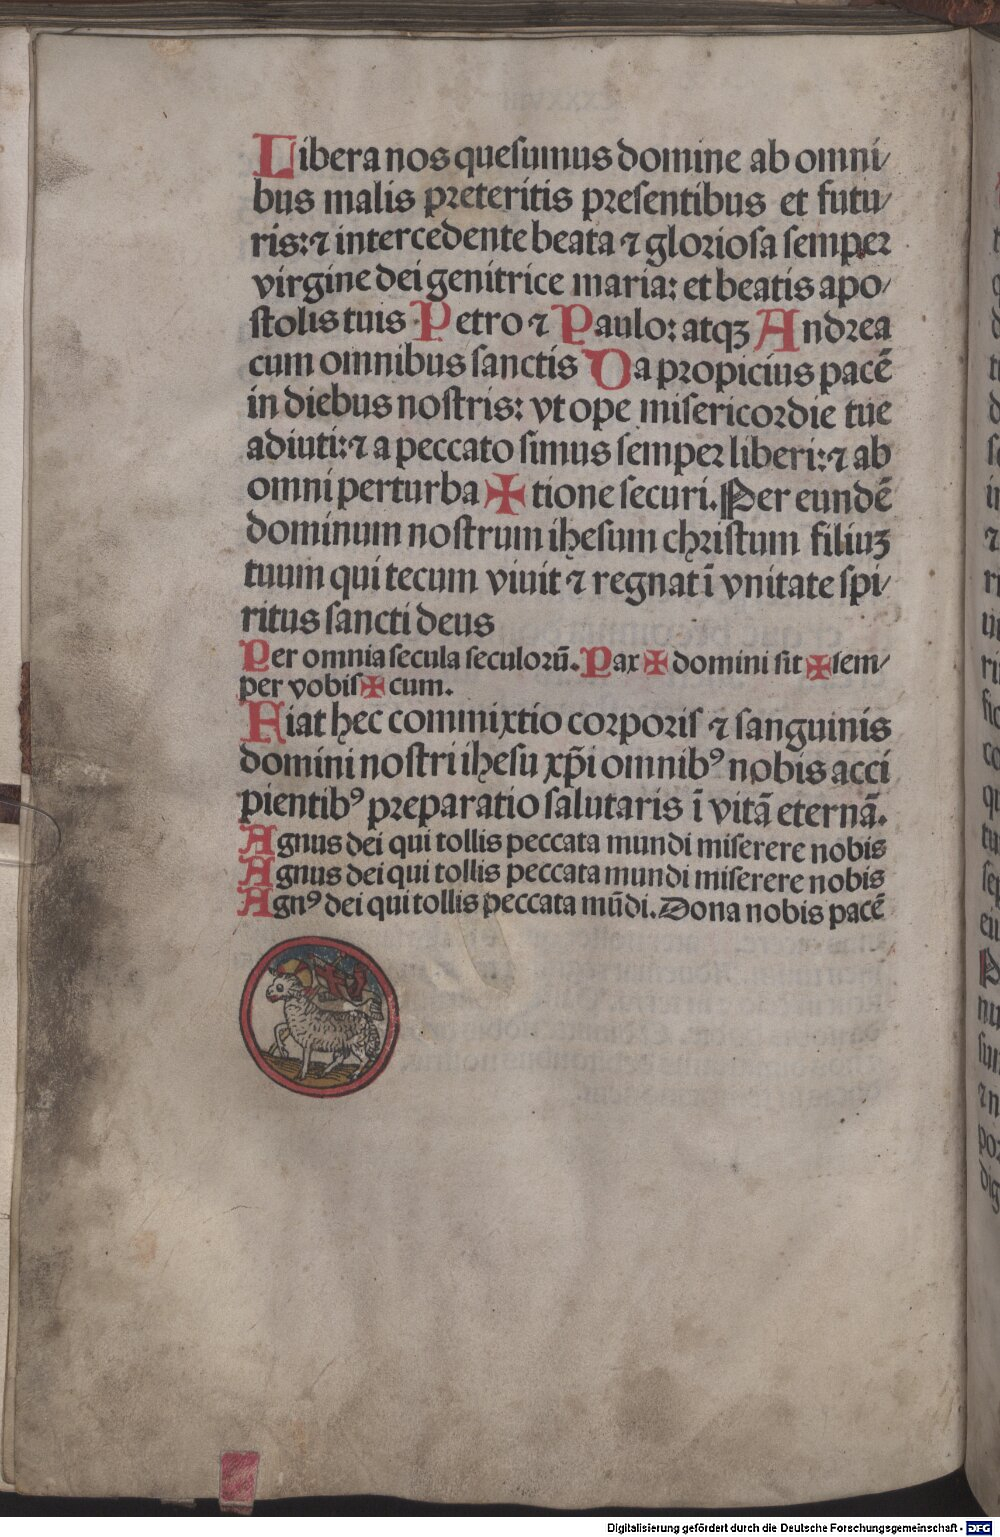 Libera nos quesumus domine ab omni/
bus malis preteritis presentibus et futu/
ris: ⁊ intercedente beata ⁊ gloriosa semper
virgine dei genitrice maria: et beatis apo/
stolis tuis Petro ⁊ Paulo: atqꝫ Andrea
cum omnibus sanctis Da propicius pacē
in diebus nostris: vt ope misericordie tue
adiuti: ⁊ a peccato simus semper liberi: ⁊ ab
omni perturba ✠ tione securi. Per eundē
dominum nostrum ihesum christum filiuꝫ
tuum qui tecum viuit ⁊ regnat ī vnitate spi/
ritus sancti deus
Per omnia secula seculorū. Pax ✠ domini sit ✠ sem/
per vobis ✠ cum.
Fiat hec commixtio corporis ⁊ sanguinis
domini nostri ihesu xp̄i omnibꝰ nobis acci
pientibꝰ preparatio salutaris ī vitā eternā.
Agnus dei qui tollis peccata mundi miserere nobis
Agnus dei qui tollis peccata mundi miserere nobis
Agnꝰ dei qui tollis peccata mūdi. Dona nobis pacē
Digitalisierung gefördert durch die Deutsche Forschungsgemeinschaft - DFG